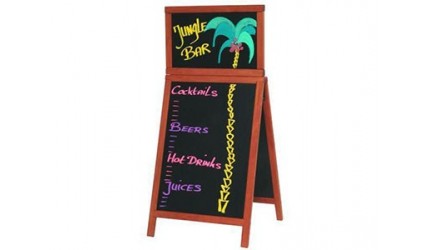 Jungle
Bar
Cocktails
Beers
Hot Drinks
Juices